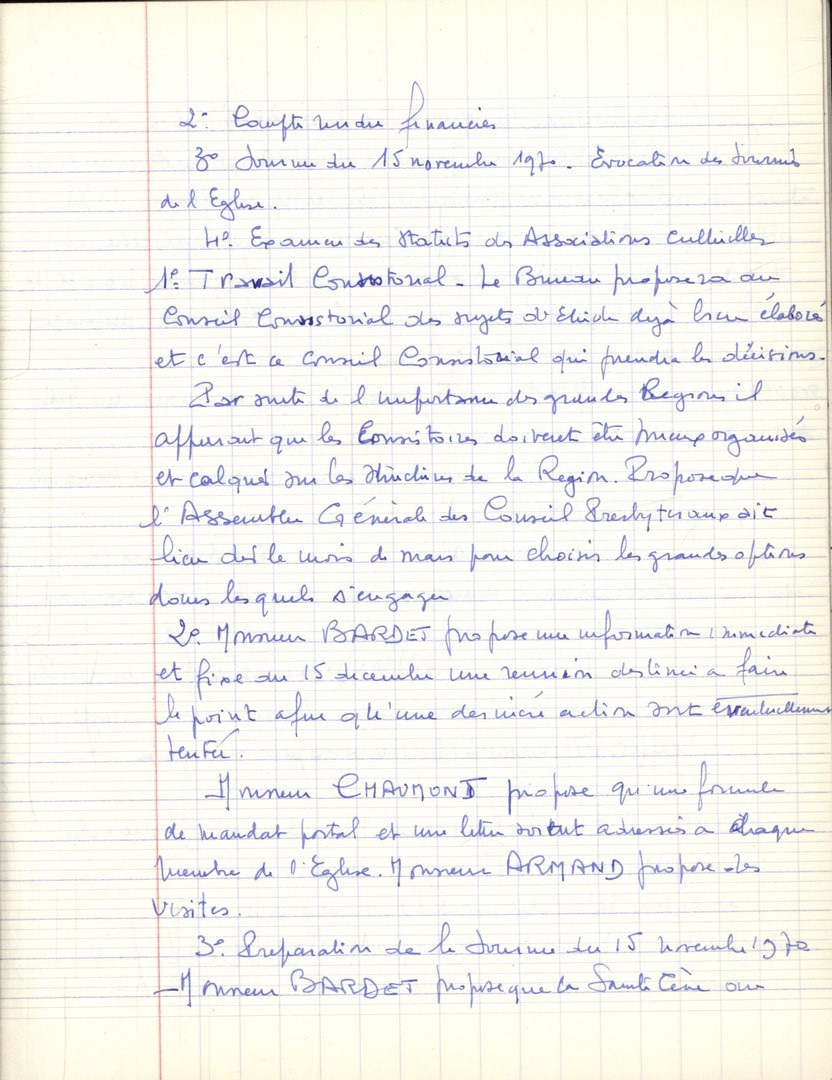 2°. Compte rendu financier
3° Journée du 15 novembre 1970. Evocation des Journées
de l'Eglise.
4°. Examen des statuts des Associations Cultuelles
1°. Travail Consistorial - Le Bureau proposera au
Conseil Consistorial des sujets d'étude déjà bien élaboré
et c'est ce conseil Consistorial qui prendra les décisions.
Par suite de l'importance des grandes Régions il
apparait que les Consistoires doivent être mieux organisés
et calqués sur les structures de la Région. Propose que
l'Assemblée Générale des Conseil Presbytéraux ait
lieu dès le mois de mars pour choisir les grandes options
dans lesquels s'engager
2°. Monsieur BARDET propose une information immédiate
et fixe au 15 décembre une réunion destinée à faire
le point afin qu'une dernière action soit éventuellement
tentée.
Monsieur CHAUMONT propose qu'une formule
de mandat postal et une lettre soient adressés à chaque
membre de l'Eglise. Monsieur ARMAND propose des
visites.
3°. Préparation de la Journée du 15 novembre 1970
- Monsieur BARDET propose que la Sainte Cène ou